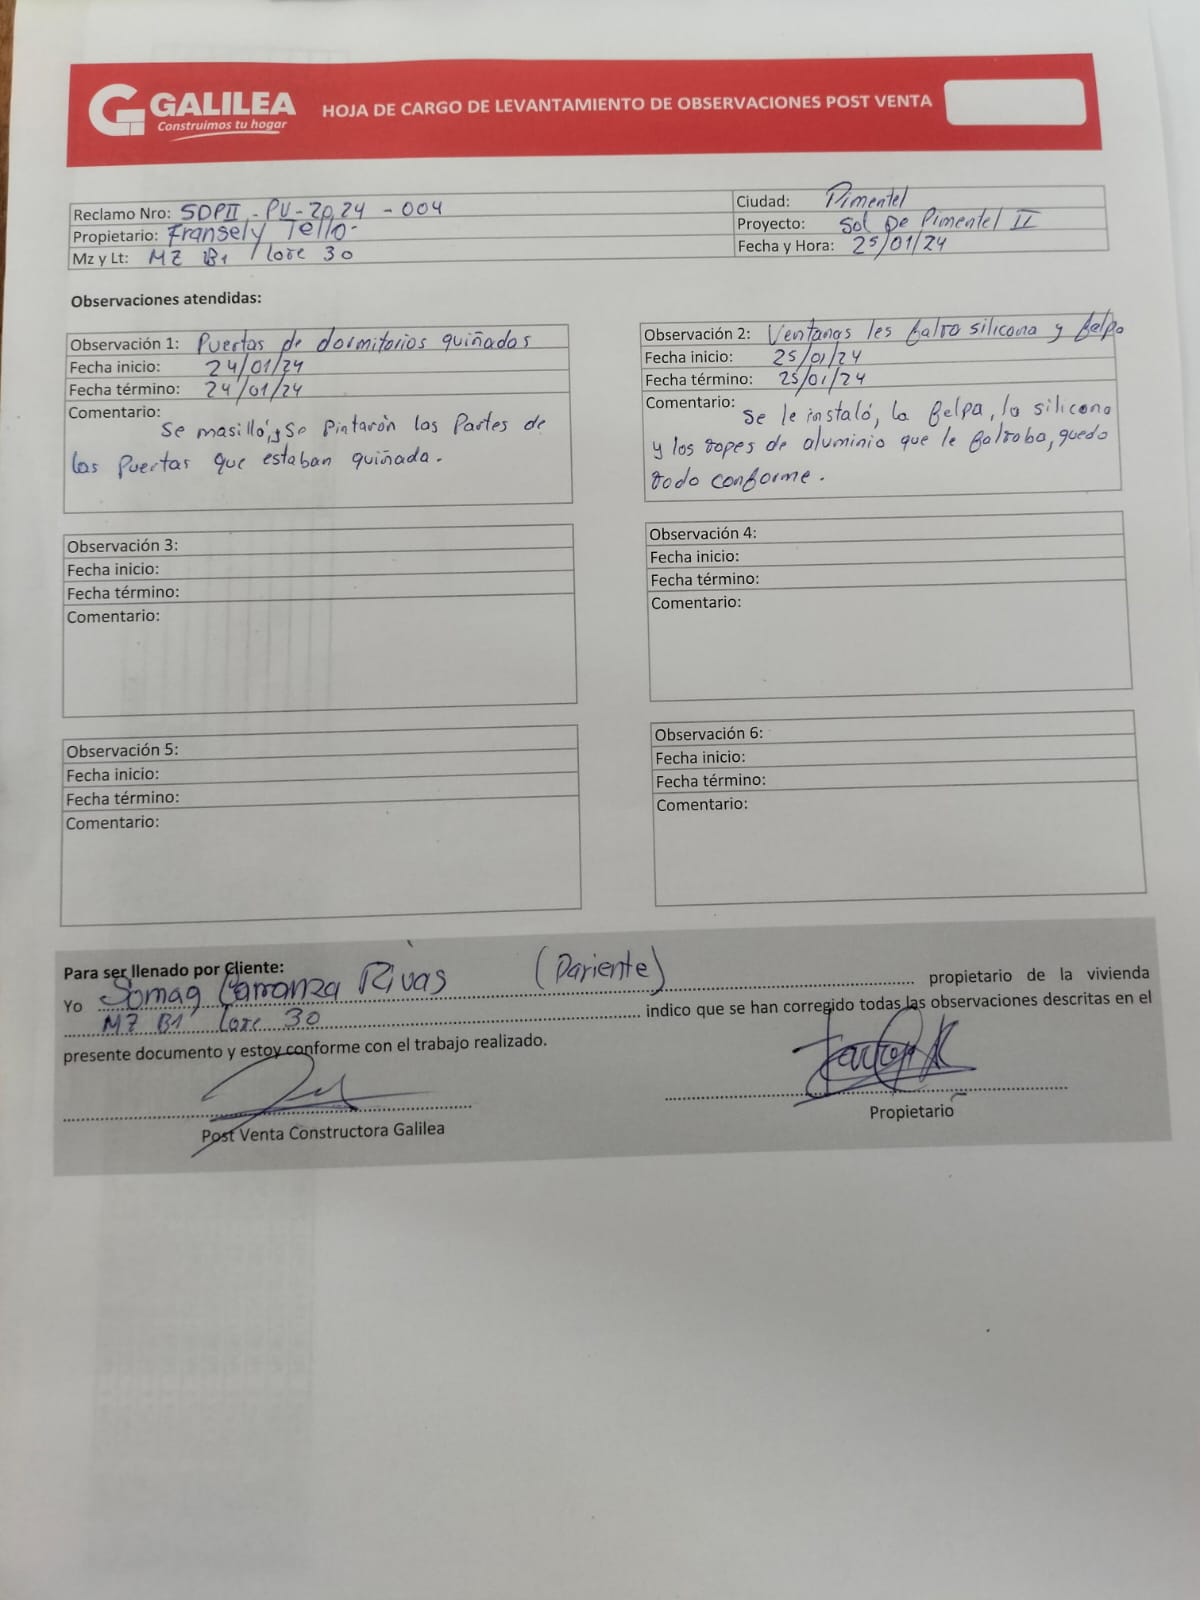 GALILEA
Construimos tu hogar
HOJA DE CARGO DE LEVANTAMIENTO DE OBSERVACIONES POST VENTA
Reclamo Nro: SDPII - PV - 2024 - 004
Ciudad: Pimentel
Propietario: Fransely Tello
Proyecto: Sol De Pimentel II
Mz y Lt: MZ B1 / Lote 30
Fecha y Hora: 25/01/24
Observaciones atendidas:
Observación 1: Puertas de dormitorios quiñadas
Fecha inicio: 24/01/24
Fecha término: 24/01/24
Comentario:
Se masilló, y se Pintarón las Partes de
las Puertas que estaban quiñada.
Observación 2: Ventanas les falta silicona y felpa
Fecha inicio: 25/01/24
Fecha término: 25/01/24
Comentario: Se le instaló, la felpa, la silicona
y los topes de aluminio que le faltaba, quedo
todo conforme.
Observación 3:
Fecha inicio:
Fecha término:
Comentario:
Observación 4:
Fecha inicio:
Fecha término:
Comentario:
Observación 5:
Fecha inicio:
Fecha término:
Comentario:
Observación 6:
Fecha inicio:
Fecha término:
Comentario:
Para ser llenado por Cliente:
Yo Carranza Rivas (Pariente) propietario de la vivienda
MZ B1 Lote 30 indico que se han corregido todas las observaciones descritas en el
presente documento y estoy conforme con el trabajo realizado.
Post Venta Constructora Galilea
Propietario